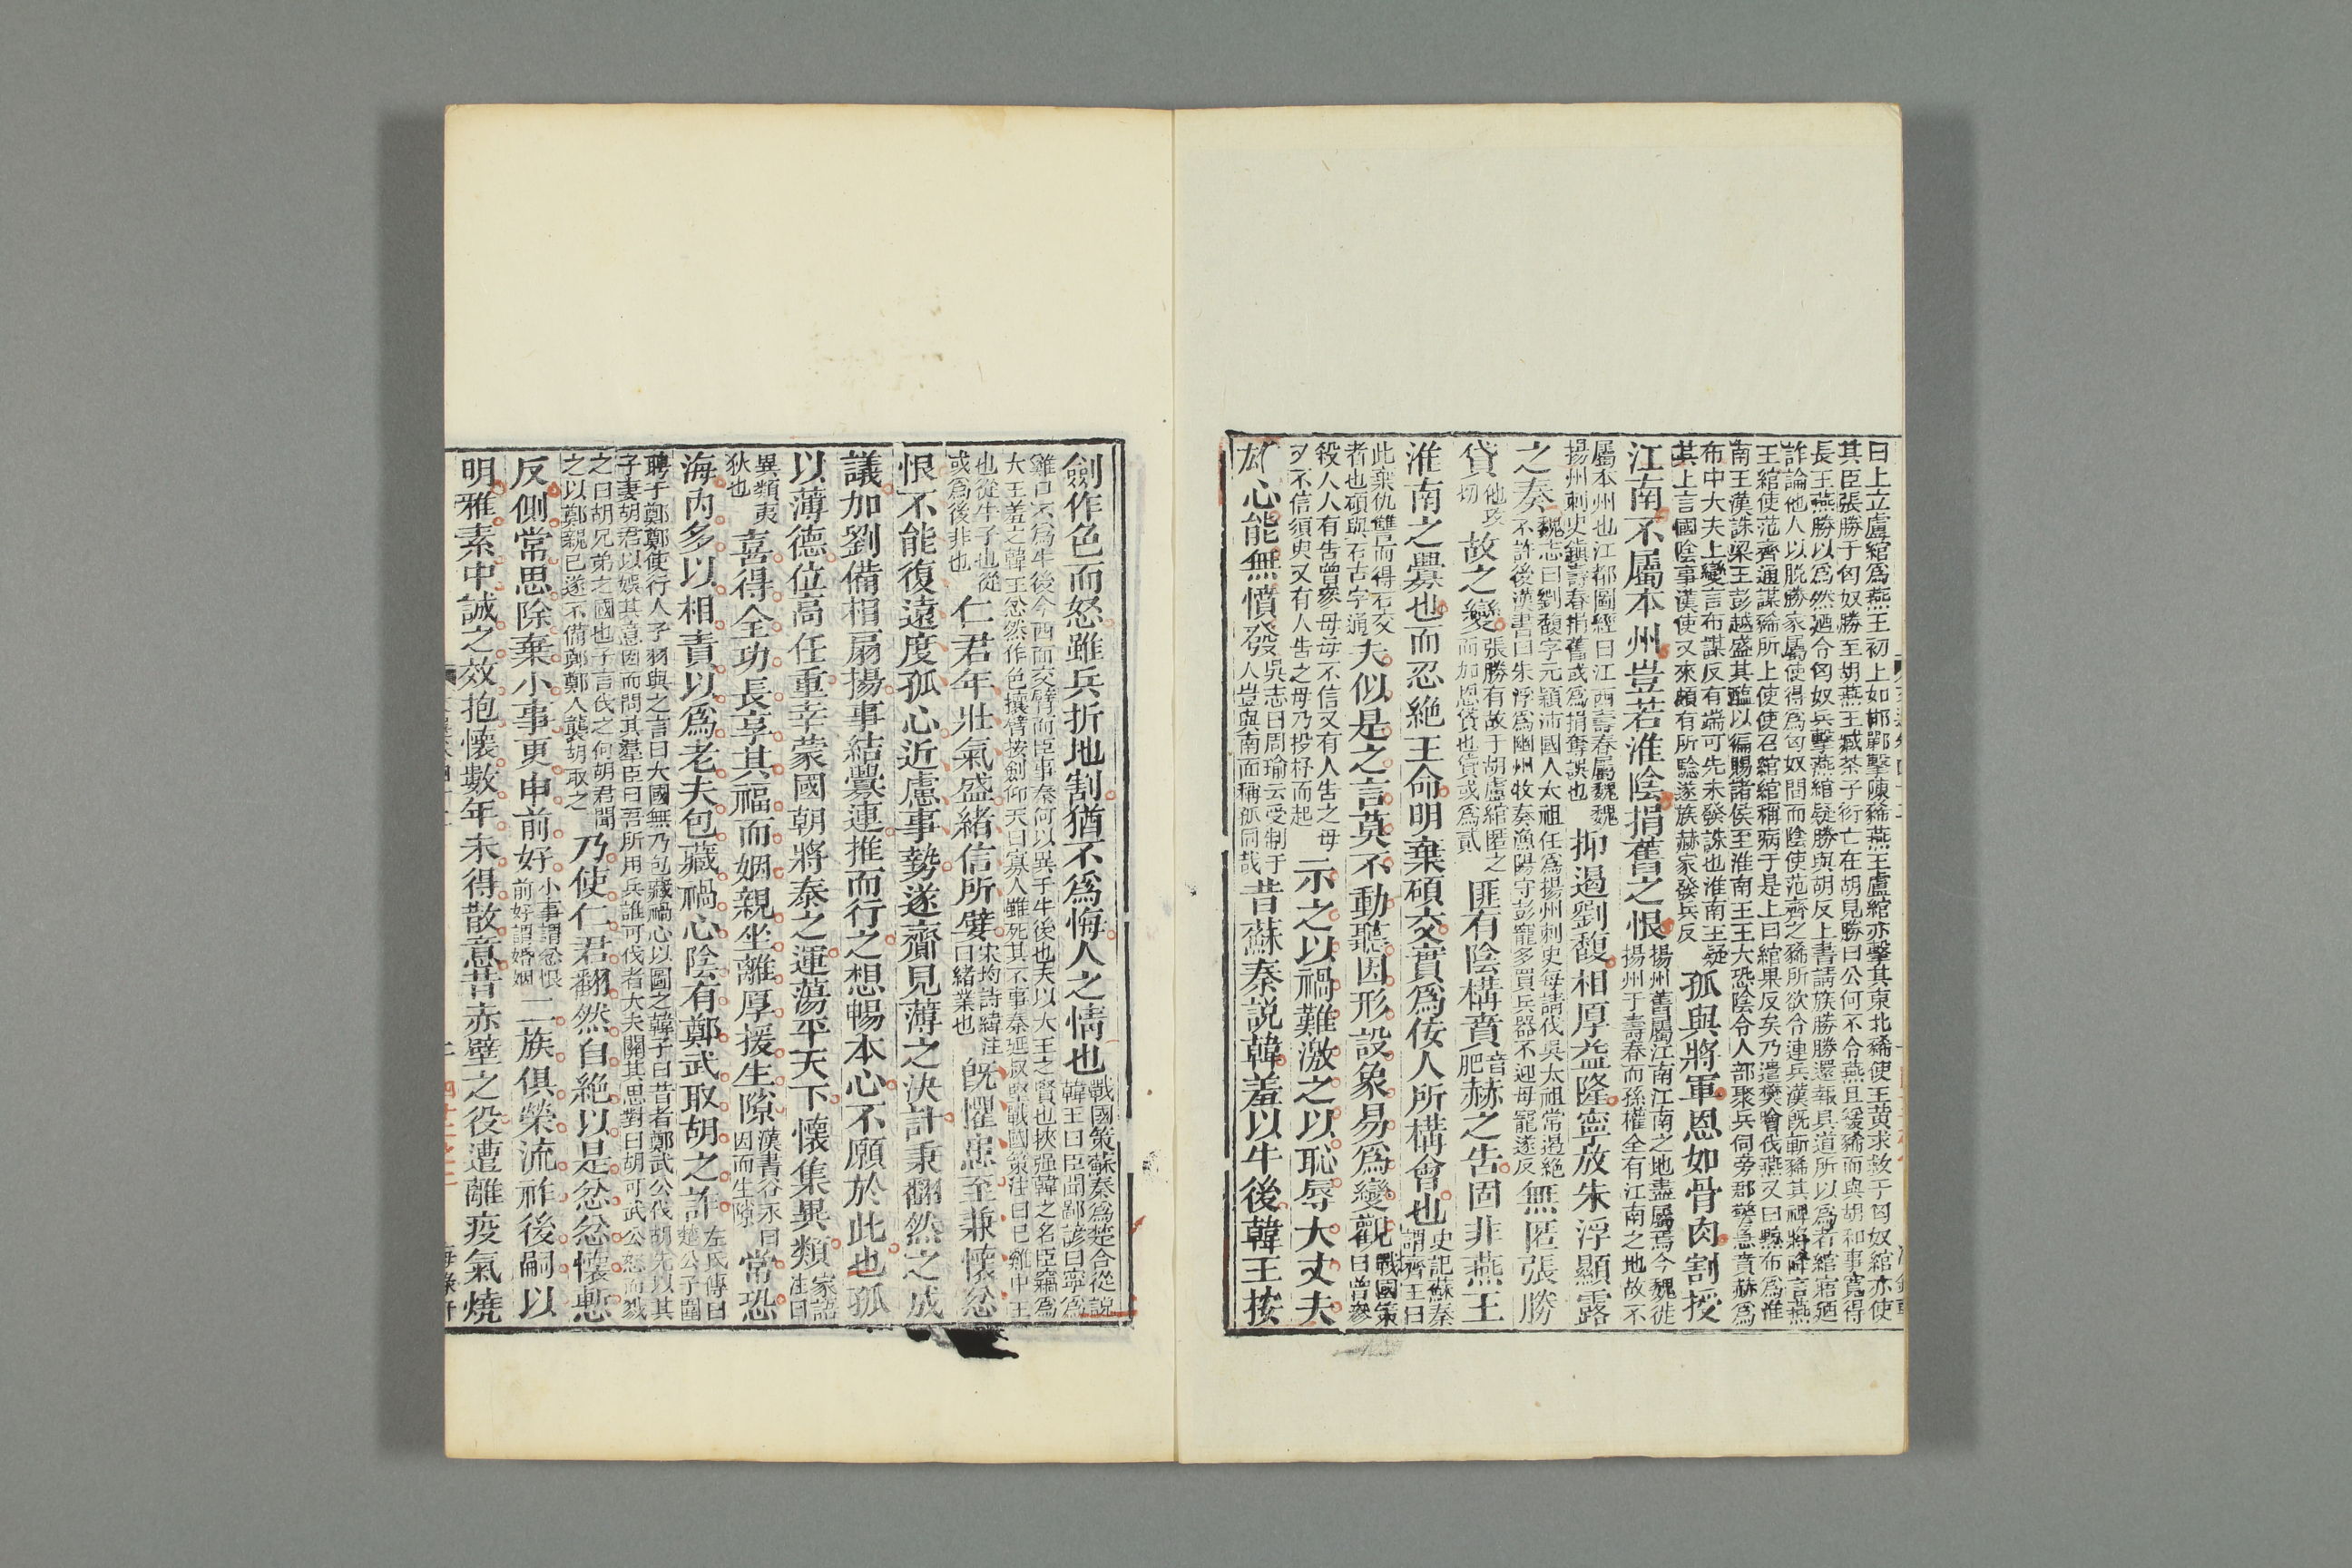 曰上立盧綰爲燕王初上如邯鄲擊陳豨燕王盧綰亦擊其東北豨使王黄求救于匈奴綰亦使
其臣張勝于匈奴勝至胡燕王臧荼子衍亡在胡見勝曰公何不令燕且緩豨而與胡和事寬得
長王燕勝以爲然廼令匈奴兵擊燕綰疑勝與胡反上書請族勝勝還報具道所以爲者綰寤廼
詐論他人以脫勝家屬使得爲匈奴間而陰使范齊之豨所欲令連兵漢旣斬豨其裨將降言燕
王綰使范齊通謀豨所上使使召綰綰稱病于是上曰綰果反矣乃遣樊噲伐燕又曰黥布爲淮
南王漢誅梁王彭越盛其醢以徧賜諸侯至淮南王王大恐陰令人部聚兵伺旁郡警急賁赫爲
布中大夫上變言布謀反有端可先未發誅也淮南王疑其上言國陰事漢使又來頗有所驗遂族赫家發兵反孤與將軍恩如骨肉割授
江南不屬本州豈若淮陰捐舊之恨揚州舊屬江南江南之地盡屬焉今魏徙揚州于壽春而孫權全有江南之地故不
屬本州也江都圖經曰江西壽春屬魏魏揚州刺史鎭壽春捐舊或爲捐奪誤也抑遏劉馥相厚益隆寧放朱浮顯露
之奏魏志曰劉馥字元穎沛國人太祖任爲揚州刺史每請伐吳太祖常遏絶不許後漢書曰朱浮爲幽州牧奏漁陽守彭寵多買兵器不迎母寵遂反無匿張勝
貸他攻切故之變張勝有故于胡盧綰匿之而加恩貸也貸或爲貳匪有陰構賁音肥赫之吿固非燕王
淮南之釁也而忍絶王命明棄碩交實爲佞人所構會也史記蘇秦謂齊王曰
此棄仇讐而得石交者也碩與石古字通夫似是之言莫不動聽因形設象易爲變觀戰國策曰曾參
殺人人有吿曾參母母不信又有人吿之母又不信須臾又有人吿之母乃投杼而起示之以禍難激之以恥辱大丈夫
雄心能無憤發吳志曰周瑜云受制于人豈與南面稱孤同哉昔蘇秦説韓羞以牛後韓王按
劒作色而怒雖兵折地割猶不爲悔人之情也戰國策蘇秦爲楚合從說韓王曰臣聞鄙諺曰寧爲
雞口不爲牛後今西面交臂而臣事秦何以異于牛後也夫以大王之賢也挾强韓之名臣竊爲大王羞之韓王忿然作色攘臂按劍仰天曰寡人雖死其不事秦延叔堅戰國策注曰尸雞中王
也從牛子也從或爲後非也仁君年壯氣盛緒信所嬖宋均詩緯注曰緒業也旣懼患至兼懷忿
恨不能復遠度孤心近慮事勢遂齎見薄之決計秉翻然之成
議加劉備相扇揚事結釁連推而行之想暢本心不願於此也孤
以薄德位高任重幸蒙國朝將泰之運蕩平天下懷集異類家語注曰
異類夷狄也喜得全功長享其福而姻親坐離厚援生隙漢書谷永曰因而生隙常恐
海内多以相責以爲老夫包藏禍心陰有鄭武取胡之詐左氏傳曰楚公子圍
聘于鄭鄭使行人子羽與之言曰大國無乃包藏禍心以圖之韓子曰昔者鄭武公伐胡先以其子妻胡君以娛其意因而問其羣臣曰吾所用兵誰可伐者大夫關其思對曰胡可武公怒而戮
之曰胡兄弟之國也子言伐之何胡君聞之以鄭親已遂不備鄭鄭人襲胡取之乃使仁君翻然自絶以是忿忿懷慙
反側常思除棄小事更申前好小事謂忿恨前好謂婚姻二族俱榮流祚後嗣以
明雅素中誠之效抱懷數年未得散意昔赤壁之役遭離疫氣燒